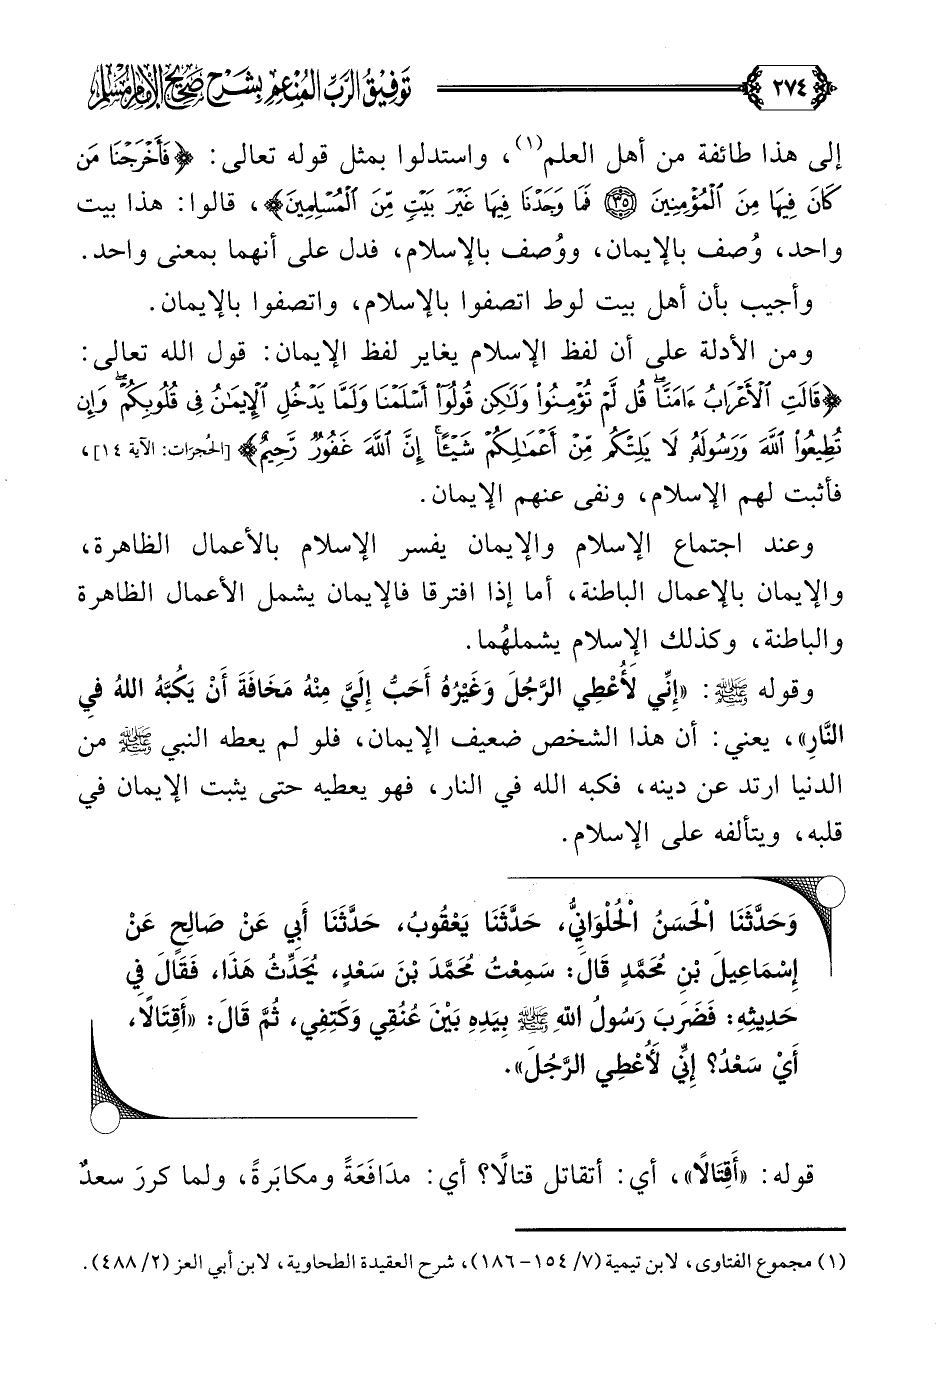 ٢٧٤ توفيق الرب المنعم بشرح صحيح الإمام مسلم
إلى هذا طائفة من أهل العلم(١)، واستدلوا بمثل قوله تعالى: ﴿فَأَخْرَجْنَا مَن
كَانَ فِيهَا مِنَ ٱلْمُؤْمِنِينَ ۝٣٥ فَمَا وَجَدْنَا فِيهَا غَيْرَ بَيْتٍ مِّنَ ٱلْمُسْلِمِينَ﴾، قالوا: هذا بيت
واحد، وُصف بالإيمان، ووُصف بالإسلام، فدل على أنهما بمعنى واحد.
وأجيب بأن أهل بيت لوط اتصفوا بالإسلام، واتصفوا بالإيمان.
ومن الأدلة على أن لفظ الإسلام يغاير لفظ الإيمان: قول الله تعالى:
﴿قَالَتِ ٱلْأَعْرَابُ ءَامَنَّا ۖ قُل لَّمْ تُؤْمِنُوا۟ وَلَٰكِن قُولُوٓا۟ أَسْلَمْنَا وَلَمَّا يَدْخُلِ ٱلْإِيمَٰنُ فِى قُلُوبِكُمْ ۖ وَإِن
تُطِيعُوا۟ ٱللَّهَ وَرَسُولَهُۥ لَا يَلِتْكُم مِّنْ أَعْمَٰلِكُمْ شَيْـًٔا ۚ إِنَّ ٱللَّهَ غَفُورٌ رَّحِيمٌ﴾ [الحُجرَات: الآية ١٤]،
فأثبت لهم الإسلام، ونفى عنهم الإيمان.
وعند اجتماع الإسلام والإيمان يفسر الإسلام بالأعمال الظاهرة،
والإيمان بالإعمال الباطنة، أما إذا افترقا فالإيمان يشمل الأعمال الظاهرة
والباطنة، وكذلك الإسلام يشملهُما.
وقوله ﷺ: «إِنِّي لَأُعْطِي الرَّجُلَ وَغَيْرُهُ أَحَبُّ إِلَيَّ مِنْهُ مَخَافَةَ أَنْ يَكُبَّهُ اللهُ فِي
النَّارِ»، يعني: أن هذا الشخص ضعيف الإيمان، فلو لم يعطه النبي ﷺ من
الدنيا ارتد عن دينه، فكبه الله في النار، فهو يعطيه حتى يثبت الإيمان في
قلبه، ويتألفه على الإسلام.
وَحَدَّثَنَا الْحَسَنُ الْحُلْوَانِيُّ، حَدَّثَنَا يَعْقُوبُ، حَدَّثَنَا أَبِي عَنْ صَالِحٍ عَنْ
إِسْمَاعِيلَ بْنِ مُحَمَّدٍ قَالَ: سَمِعْتُ مُحَمَّدَ بْنَ سَعْدٍ، يُحَدِّثُ هَذَا، فَقَالَ فِي
حَدِيثِهِ: فَضَرَبَ رَسُولُ اللهِ ﷺ بِيَدِهِ بَيْنَ عُنُقِي وَكَتِفِي، ثُمَّ قَالَ: «أَقِتَالًا،
أَيْ سَعْدُ؟ إِنِّي لَأُعْطِي الرَّجُلَ».
قوله: «أَقِتَالًا»، أي: أتقاتل قتالًا؟ أي: مدَافَعَةً ومكابَرةً، ولما كررَ سعدٌ
(١) مجموع الفتاوى، لابن تيمية (٧/ ١٥٤-١٨٦)، شرح العقيدة الطحاوية، لابن أبي العز (٢/ ٤٨٨).